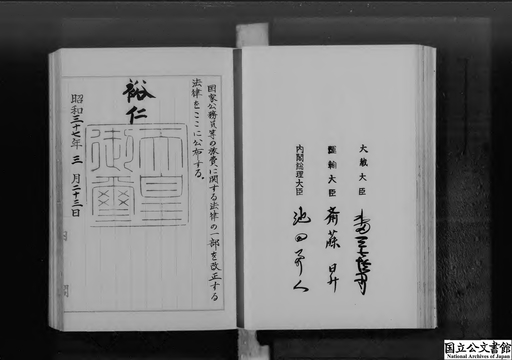 大蔵大臣 水田三喜男
運輸大臣 齋藤昇
内閣総理大臣 池田勇人
国家公務員等の旅費に関する法律の一部を改正する
法律をここに公布する。
裕仁
天皇
御璽
昭和三十七年三月二十三日
国立公文書館
National Archives of Japan